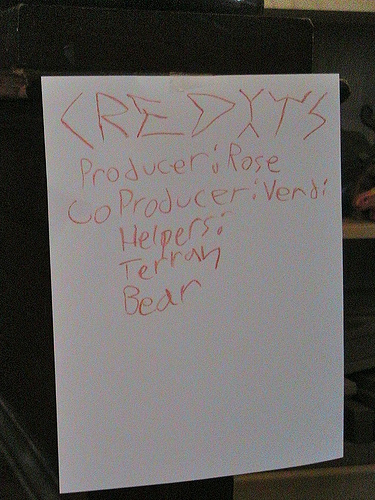 CREDYTS
Producer: Rose
Co Producer: Vendi
Helpers:
Terran
Bear